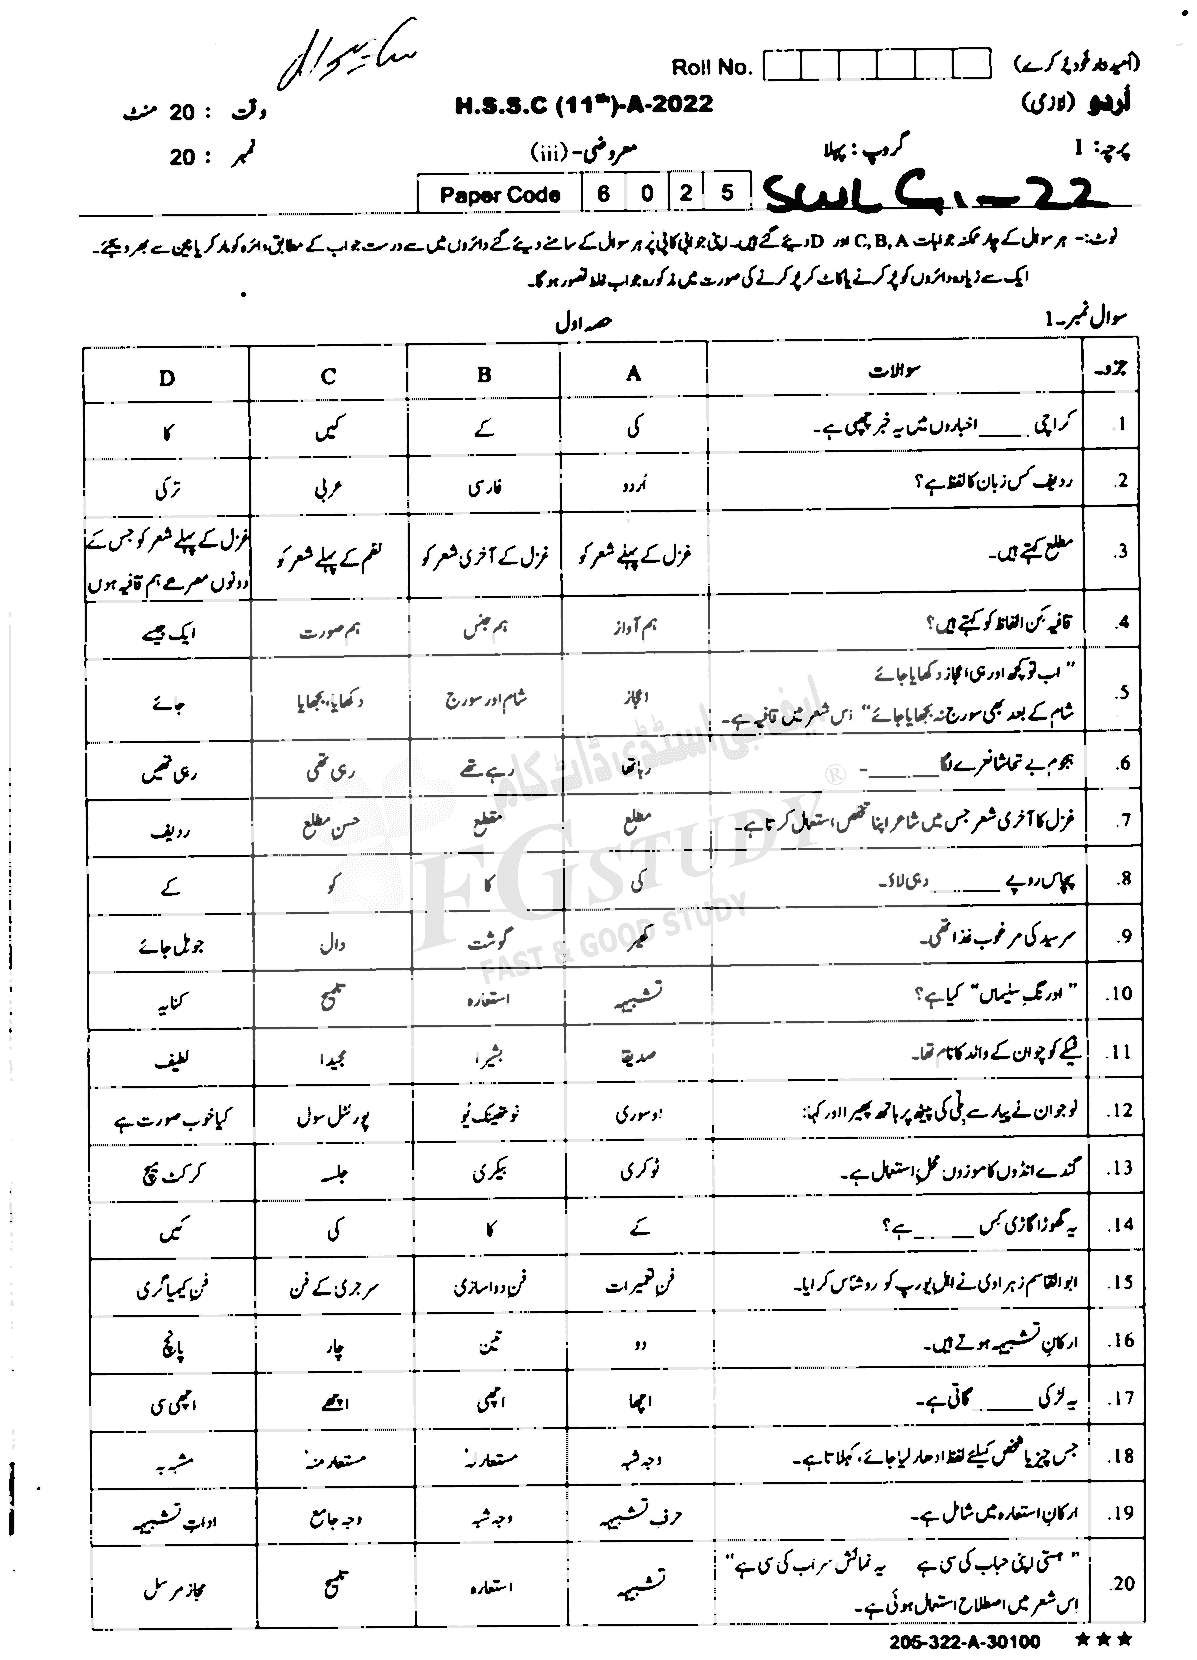 ساہیوال
Roll No. (امیدوار خود پُر کرے)
اُردو (لازمی) H.S.S.C (11th)-A-2022 وقت : 20 منٹ
پرچہ: I گروپ : پہلا معروضی-(iii) نمبر : 20
Paper Code 6 0 2 5 SWL G1-22
نوٹ:- ہر سوال کے چار ممکنہ جوابات C, B, A اور D دیئے گئے ہیں۔ اپنی جوابی کاپی پر ہر سوال کے سامنے دیئے گئے دائروں میں سے درست جواب کے مطابق دائرہ کو مارکر یا پین سے بھر دیجئے۔
ایک سے زیادہ دائروں کو پُر کرنے یا کاٹ کر پُر کرنے کی صورت میں مذکورہ جواب غلط تصور ہوگا۔
سوال نمبر-1 حصہ اول
جزو۔ سوالات A B C D
1. کراچی ____ اخباروں میں یہ خبر چھپی ہے۔ کی کے کیں کا
2. ردیف کس زبان کا لفظ ہے؟ اُردو فارسی عربی ترکی
3. مطلع کہتے ہیں۔ غزل کے پہلے شعر کو غزل کے آخری شعر کو نظم کے پہلے شعر کو غزل کے پہلے شعر کو جس کے دونوں مصرعے ہم قافیہ ہوں
4. قافیہ کن الفاظ کو کہتے ہیں؟ ہم آواز ہم جنس ہم صورت ایک جیسے
5. "اب تو کچھ اور ہی اعجاز دکھایا جائے
شام کے بعد بھی سورج نہ بجھایا جائے" اس شعر میں قافیہ ہے۔ اعجاز شام اور سورج دکھایا، بجھایا جائے
6. ہجوم بے تحاشا نعرے لگا ______۔ رہا تھا رہے تھے رہی تھی رہی تھیں
7. غزل کا آخری شعر جس میں شاعر اپنا تخلص استعمال کرتا ہے۔ مطلع مقطع حسن مطلع ردیف
8. پچاس روپے ______ دہی لاؤ۔ کی کا کو کے
9. سرسید کی مرغوب غذا تھی۔ کھیر گوشت دال جو مل جائے
10. "اورنگِ سلیماں" کیا ہے؟ تشبیہہ استعارہ تلمیح کنایہ
11. فیکے کوچوان کے والد کا نام تھا۔ صدیقا بشیرا مجیدا لطیف
12. نوجوان نے پیار سے بلی کی پیٹھ پر ہاتھ پھیرا اور کہا: او سوری نو تھینک یو پور لٹل سول کیا خوب صورت ہے
13. گندے انڈوں کا موزوں محل استعمال ہے۔ ٹوکری بیکری جلسہ کرکٹ میچ
14. یہ گھوڑا گاڑی کس ______ ہے؟ کے کا کی کیں
15. ابوالقاسم زہراوی نے اہل یورپ کو روشناس کرایا۔ فن تعمیرات فن دواسازی سرجری کے فن فن کیمیاگری
16. ارکانِ تشبیہہ ہوتے ہیں۔ دو تین چار پانچ
17. یہ لڑکی ______ گاتی ہے۔ اچھا اچھی اچھے اچھی سی
18. جس چیز یا شخص کیلئے لفظ ادھار لیا جائے، کہلاتا ہے۔ وجہ شبہ مستعارلہ مستعارمنہ مشبہ بہ
19. ارکانِ استعارہ میں شامل ہے۔ حرف تشبیہہ وجہ شبہ وجہ جامع ادات تشبیہہ
20. "ہستی اپنی حباب کی سی ہے یہ نمائش سراب کی سی ہے"
اس شعر میں اصطلاح استعمال ہوئی ہے۔ تشبیہہ استعارہ تلمیح مجاز مرسل
205-322-A-30100 ★★★
ایف جی اسٹڈی ڈاٹ کام
FG STUDY ®
FAST & GOOD STUDY